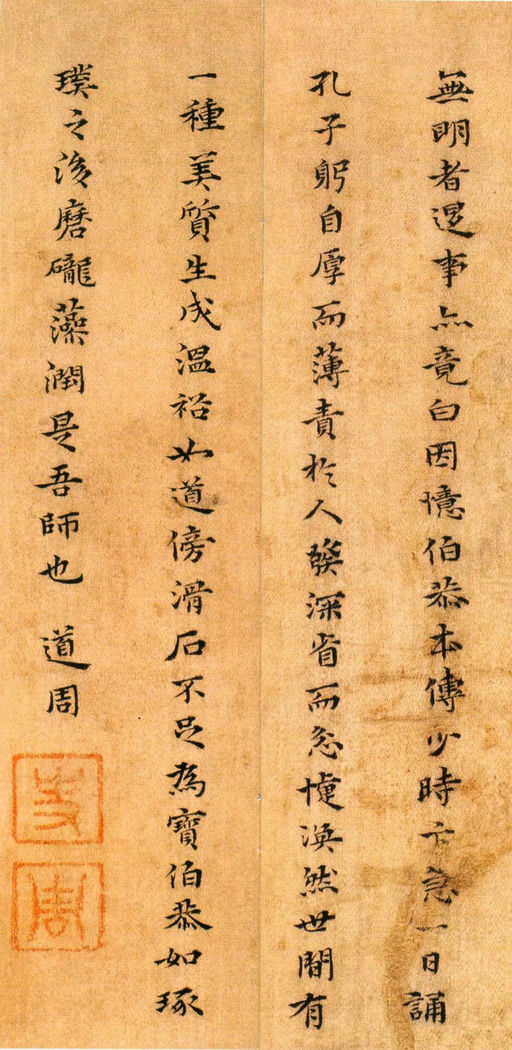 無明者事亦竟白因憶伯恭本傳少時卞急一日誦
孔子躬自厚而薄責於人發深省而忿懥渙然世間有
一種美質生成溫裕如道傍滑石不足為寶伯恭如琢
璞之後磨礲藻潤是吾師也 道周
周